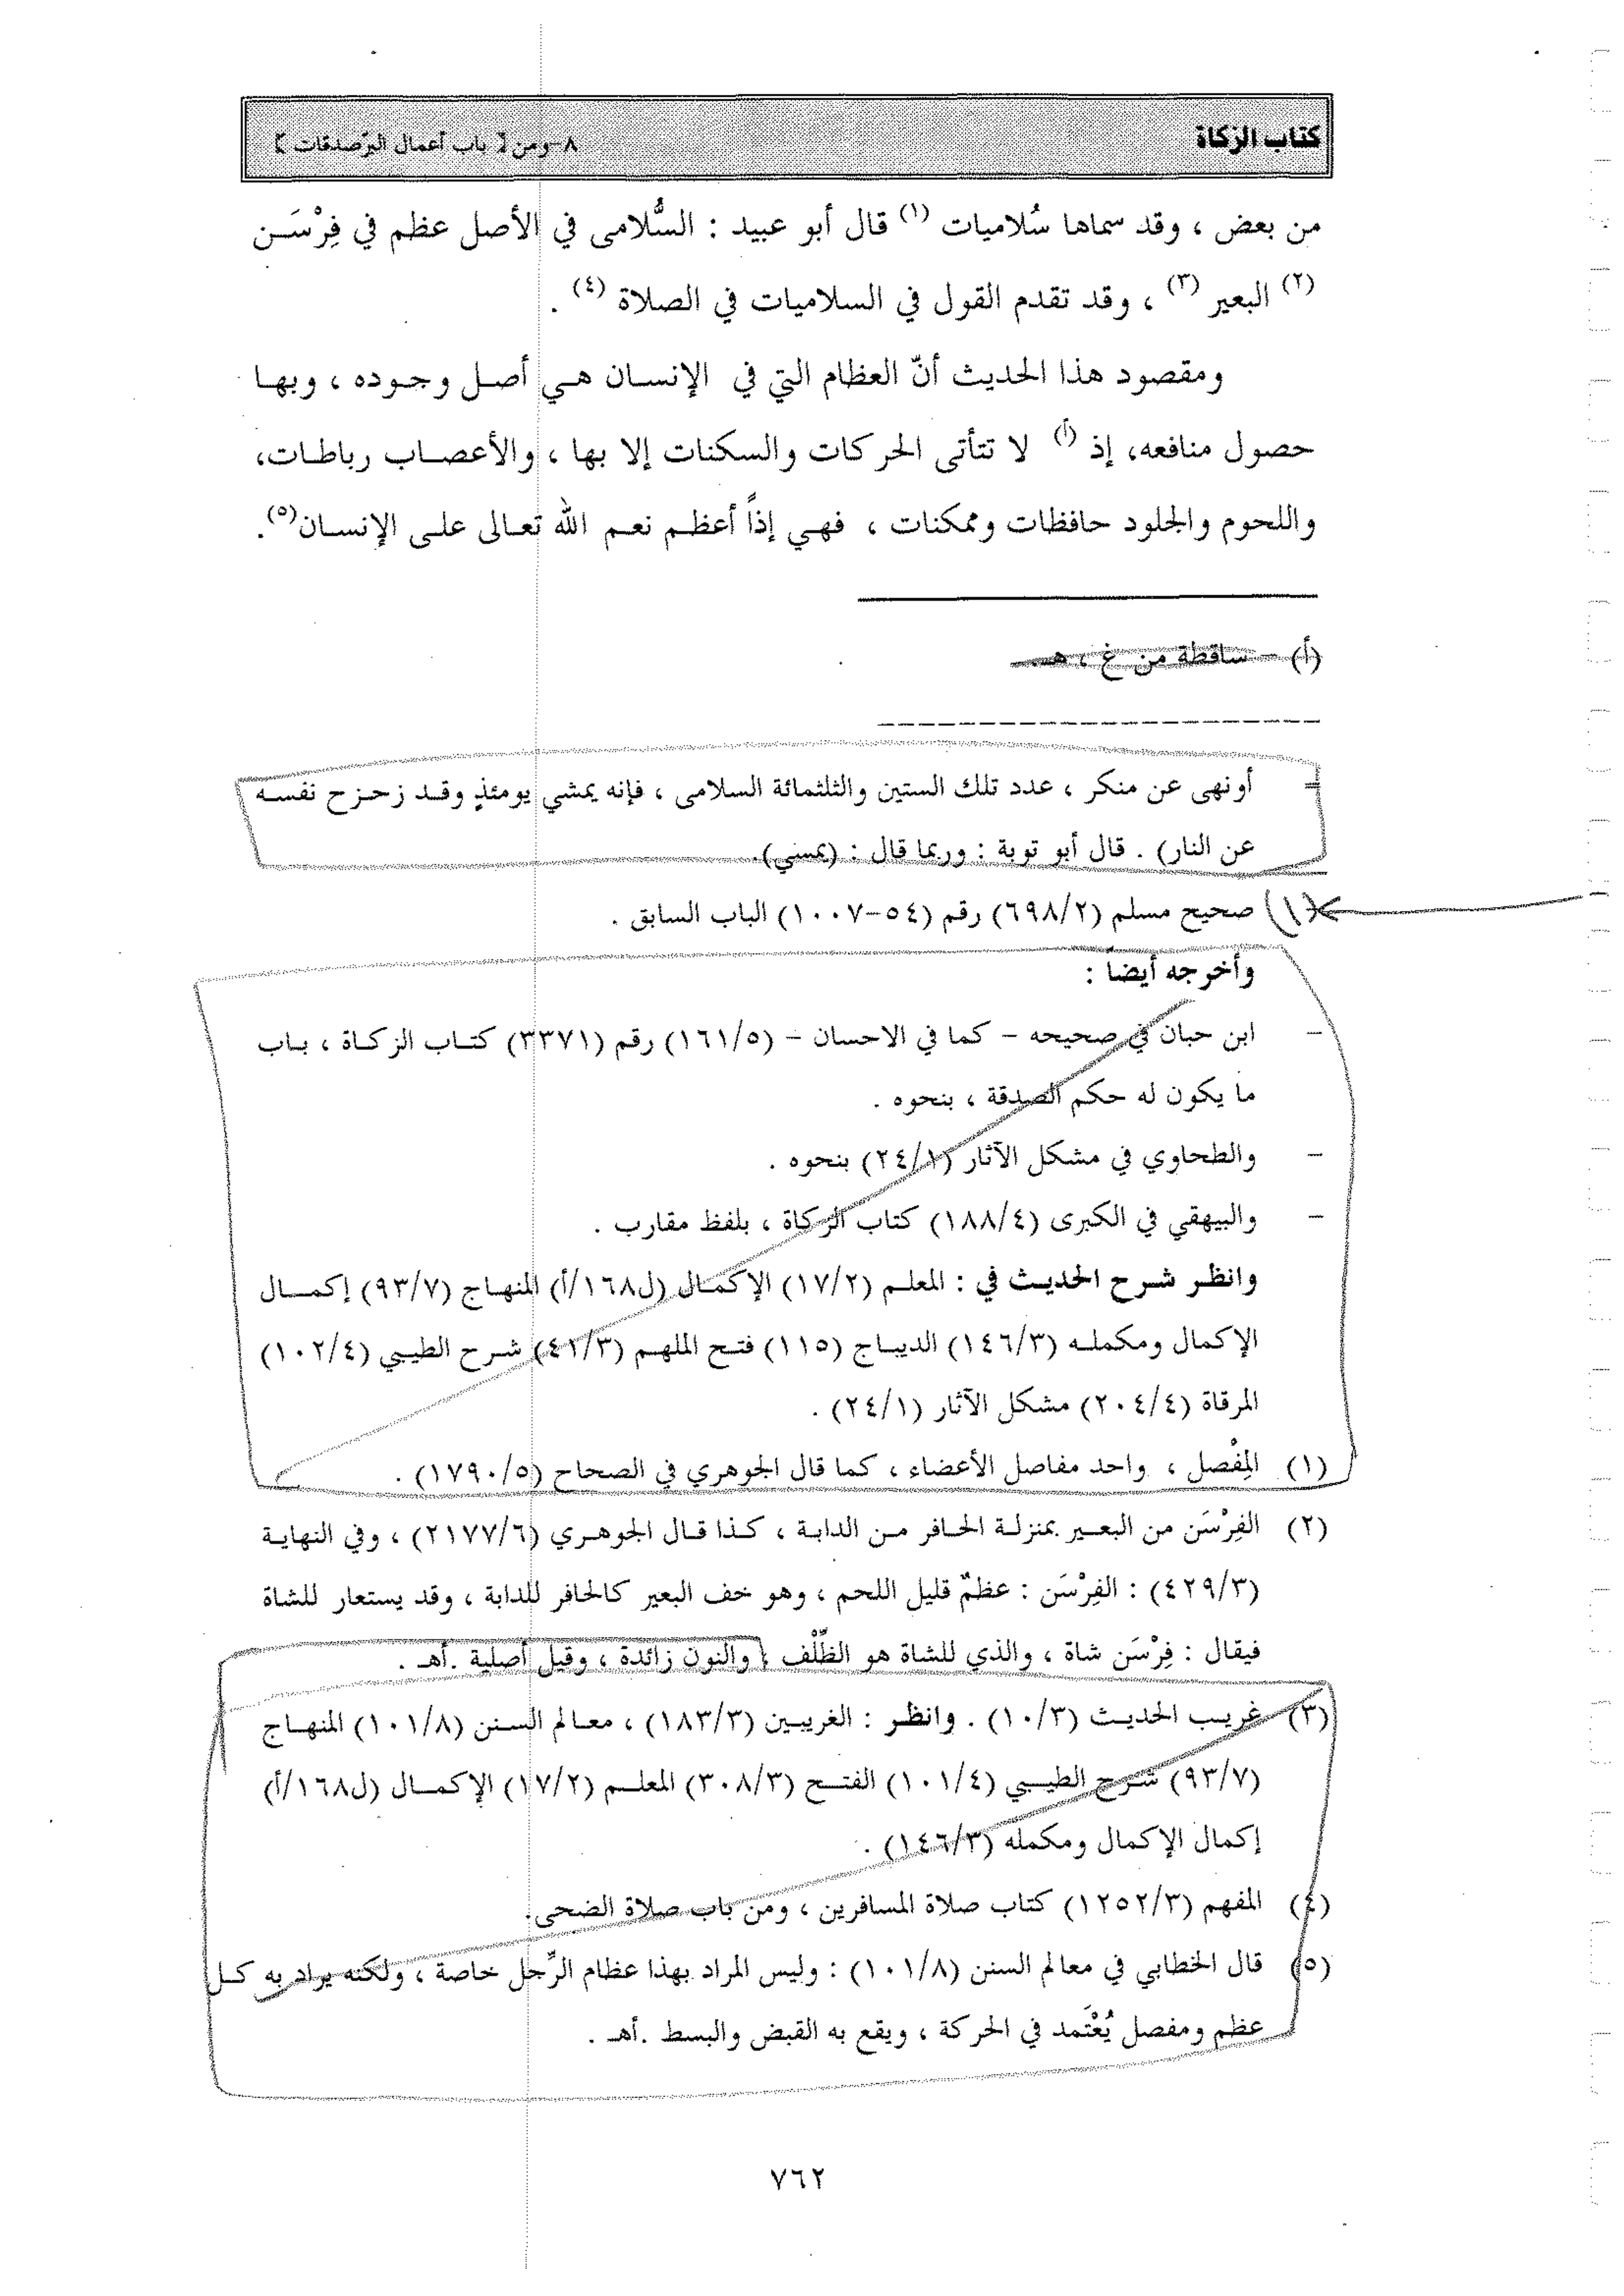 كتاب الزكاة
٨-ومن [ باب أعمال البرّ صدقات ]
من بعض ، وقد سماها سُلاميات (١) قال أبو عبيد : السُّلامى في الأصل عظم في فِرْسَـن
(٢) البعير (٣) ، وقد تقدم القول في السلاميات في الصلاة (٤) .
ومقصود هذا الحديث أنّ العظام التي في الإنسـان هـي أصـل وجـوده ، وبهـا
حصول منافعه، إذ (أ) لا تتأتى الحركات والسكنات إلا بها ، والأعصـاب رباطـات،
واللحوم والجلود حافظات وممكنات ، فهـي إذاً أعظـم نعـم الله تعـالى علـى الإنسـان(٥).
(أ) - ساقطة من غ ، هـ.
- أونهى عن منكر ، عدد تلك الستين والثلثمائة السلامى ، فإنه يمشي يومئذٍ وقـد زحـزح نفسـه
عن النار) . قال أبو توبة : وربما قال : (يمسي).
(١) صحيح مسلم (٦٩٨/٢) رقم (٥٤-١٠٠٧) الباب السابق .
وأخرجه أيضا :
- ابن حبان في صحيحه - كما في الاحسان - (١٦١/٥) رقم (٣٣٧١) كتـاب الزكـاة ، بـاب
ما يكون له حكم الصدقة ، بنحوه .
- والطحاوي في مشكل الآثار (٢٤/١) بنحوه .
- والبيهقي في الكبرى (١٨٨/٤) كتاب الزكاة ، بلفظ مقارب .
وانظـر شـرح الحديـث في : المعلـم (١٧/٢) الإكمـال (ل١٦٨/أ) المنهـاج (٩٣/٧) إكمـال
الإكمال ومكملـه (١٤٦/٣) الديبـاج (١١٥) فتـح الملهـم (٤١/٣) شـرح الطيـبي (١٠٢/٤)
المرقاة (٢٠٤/٤) مشكل الآثار (٢٤/١) .
(١) المِفْصل ، واحد مفاصل الأعضاء ، كما قال الجوهري في الصحاح (١٧٩٠/٥) .
(٢) الفِرْسَن من البعـير بمنزلـة الحـافر مـن الدابـة ، كـذا قـال الجوهـري (٢١٧٧/٦) ، وفي النهايـة
(٤٢٩/٣) : الفِرْسَن : عظمٌ قليل اللحم ، وهو خف البعير كالحافر للدابة ، وقد يستعار للشاة
فيقال : فِرْسَن شاة ، والذي للشاة هو الظِّلْف ، والنون زائدة ، وقيل أصلية .أهـ .
(٣) غريـب الحديـث (١٠/٣) . وانظـر : الغريبـين (١٨٣/٣) ، معـالم السـنن (١٠١/٨) المنهـاج
(٩٣/٧) شـرح الطيـبي (١٠١/٤) الفتـح (٣٠٨/٣) المعلـم (١٧/٢) الإكمـال (ل١٦٨/أ)
إكمال الإكمال ومكمله (١٤٦/٣) .
(٤) المفهم (١٢٥٢/٣) كتاب صلاة المسافرين ، ومن باب صلاة الضحى.
(٥) قال الخطابي في معالم السنن (١٠١/٨) : وليس المراد بهذا عظام الرِّجل خاصة ، ولكنه يراد به كـل
عظم ومفصل يُعْتَمد في الحركة ، ويقع به القبض والبسط .أهـ .
٧٦٢